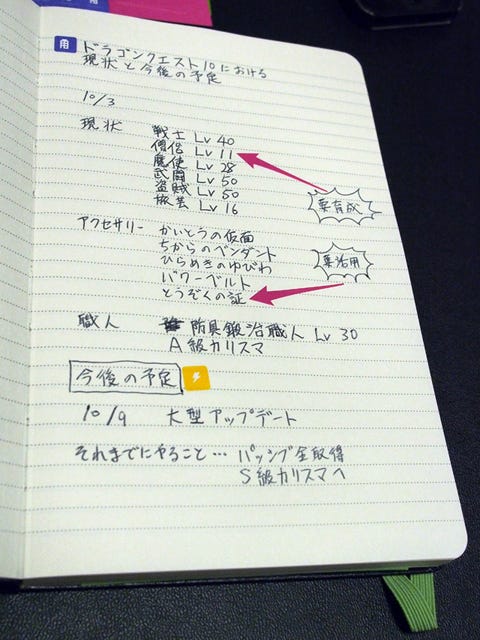 ドラゴンクエスト10における
現状と今後の予定
10/3
現状
戦士 Lv 40
僧侶 Lv 11
魔使 Lv 28
武闘 Lv 50
盗賊 Lv 50
旅芸 Lv 16
要育成
アクセサリー
かいとうの仮面
ちからのペンダント
ひらめきのゆびわ
パワーベルト
とうぞくの証
要活用
職人
防具鍛冶職人 Lv 30
A級カリスマ
今後の予定
10/9 大型アップデート
それまでにやること… パッシブ全取得
S級カリスマへ